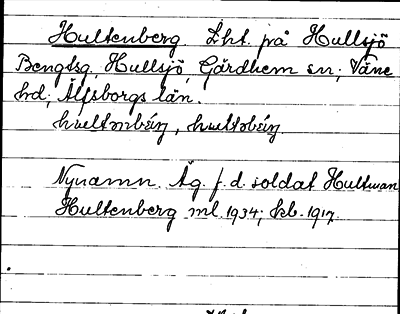 Hultenberg. Lht. på Hullsjö
Bengtsg, Hullsjö, Gärdhem sn; Väne
hd; Älfsborgs län.
Nynamn. Äg. f.d. soldat Hultman
Hultenberg ml. 1934; kb. 1917.